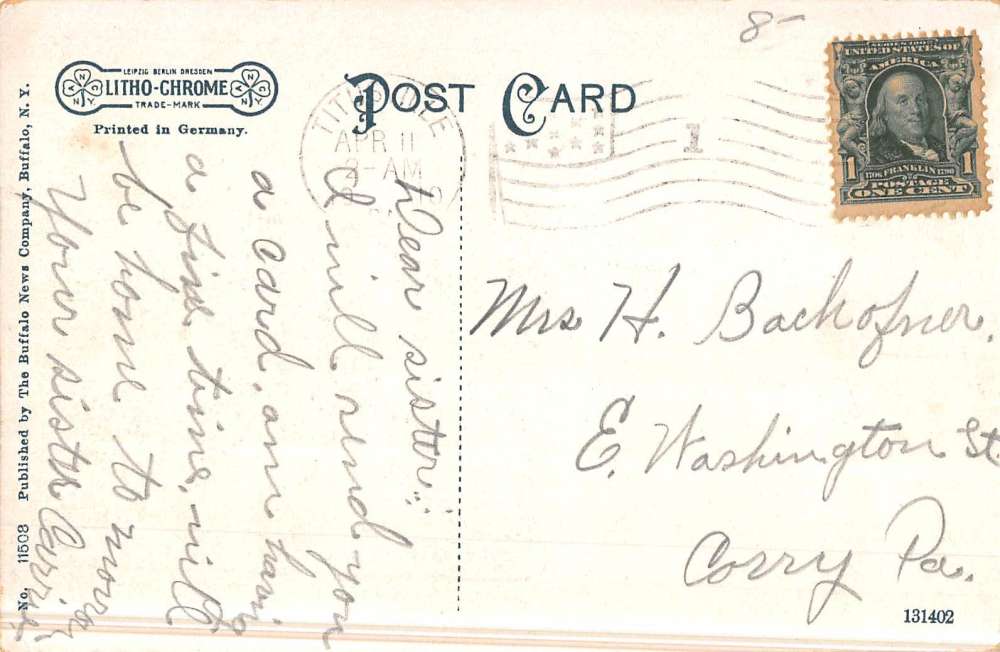 8-
LEIPZIG BERLIN DRESDEN
LITHO-CHROME
TRADE-MARK
Printed in Germany.
POST CARD
TITUSVILLE
APR 11
8-AM
1
SERIES 1902
UNITED STATES OF
AMERICA
1 1
1706 FRANKLIN 1790
POSTAGE
ONE CENT
Dear sister:
I will send you
a card, am havi
a fine time, will
be home to morro
Your sister Carrie
Mrs H. Backofner.
E. Washington St.
Corry Pa.
131402
No. 11503 Published by The Buffalo News Company, Buffalo, N. Y.